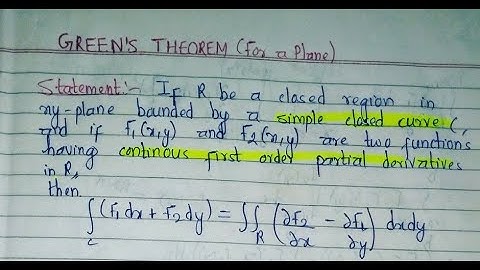 GREEN'S THEOREM (For a Plane)
Statement:- If R be a closed region in
xy-plane bounded by a simple closed curve C,
and if F₁(x,y) and F₂(x,y) are two functions
having continous first order partial derivatives
in R,
then
∫_c (F₁dx + F₂dy) = ∬_R (∂F₂/∂x - ∂F₁/∂y) dxdy